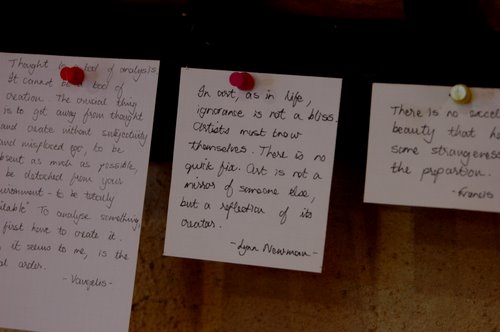 Thought is a tool of analysis.
It cannot be a tool of
creation. The crucial thing
is to get away from thought
and create without subjectivity
and misplaced ego, to be
absent as much as possible,
be detached from your
to be totally
To analyse something
first have to create it.
it seems to me, is the
order.
- Vangelis -
In art, as in life,
ignorance is not a bliss.
Artists must know
themselves. There is no
quik fix. Art is not a
mirror of someone else,
but a reflection of its
creator.
- Lynn Newman -
There is no
beauty that
some strangeness
the proportion.
- Francis